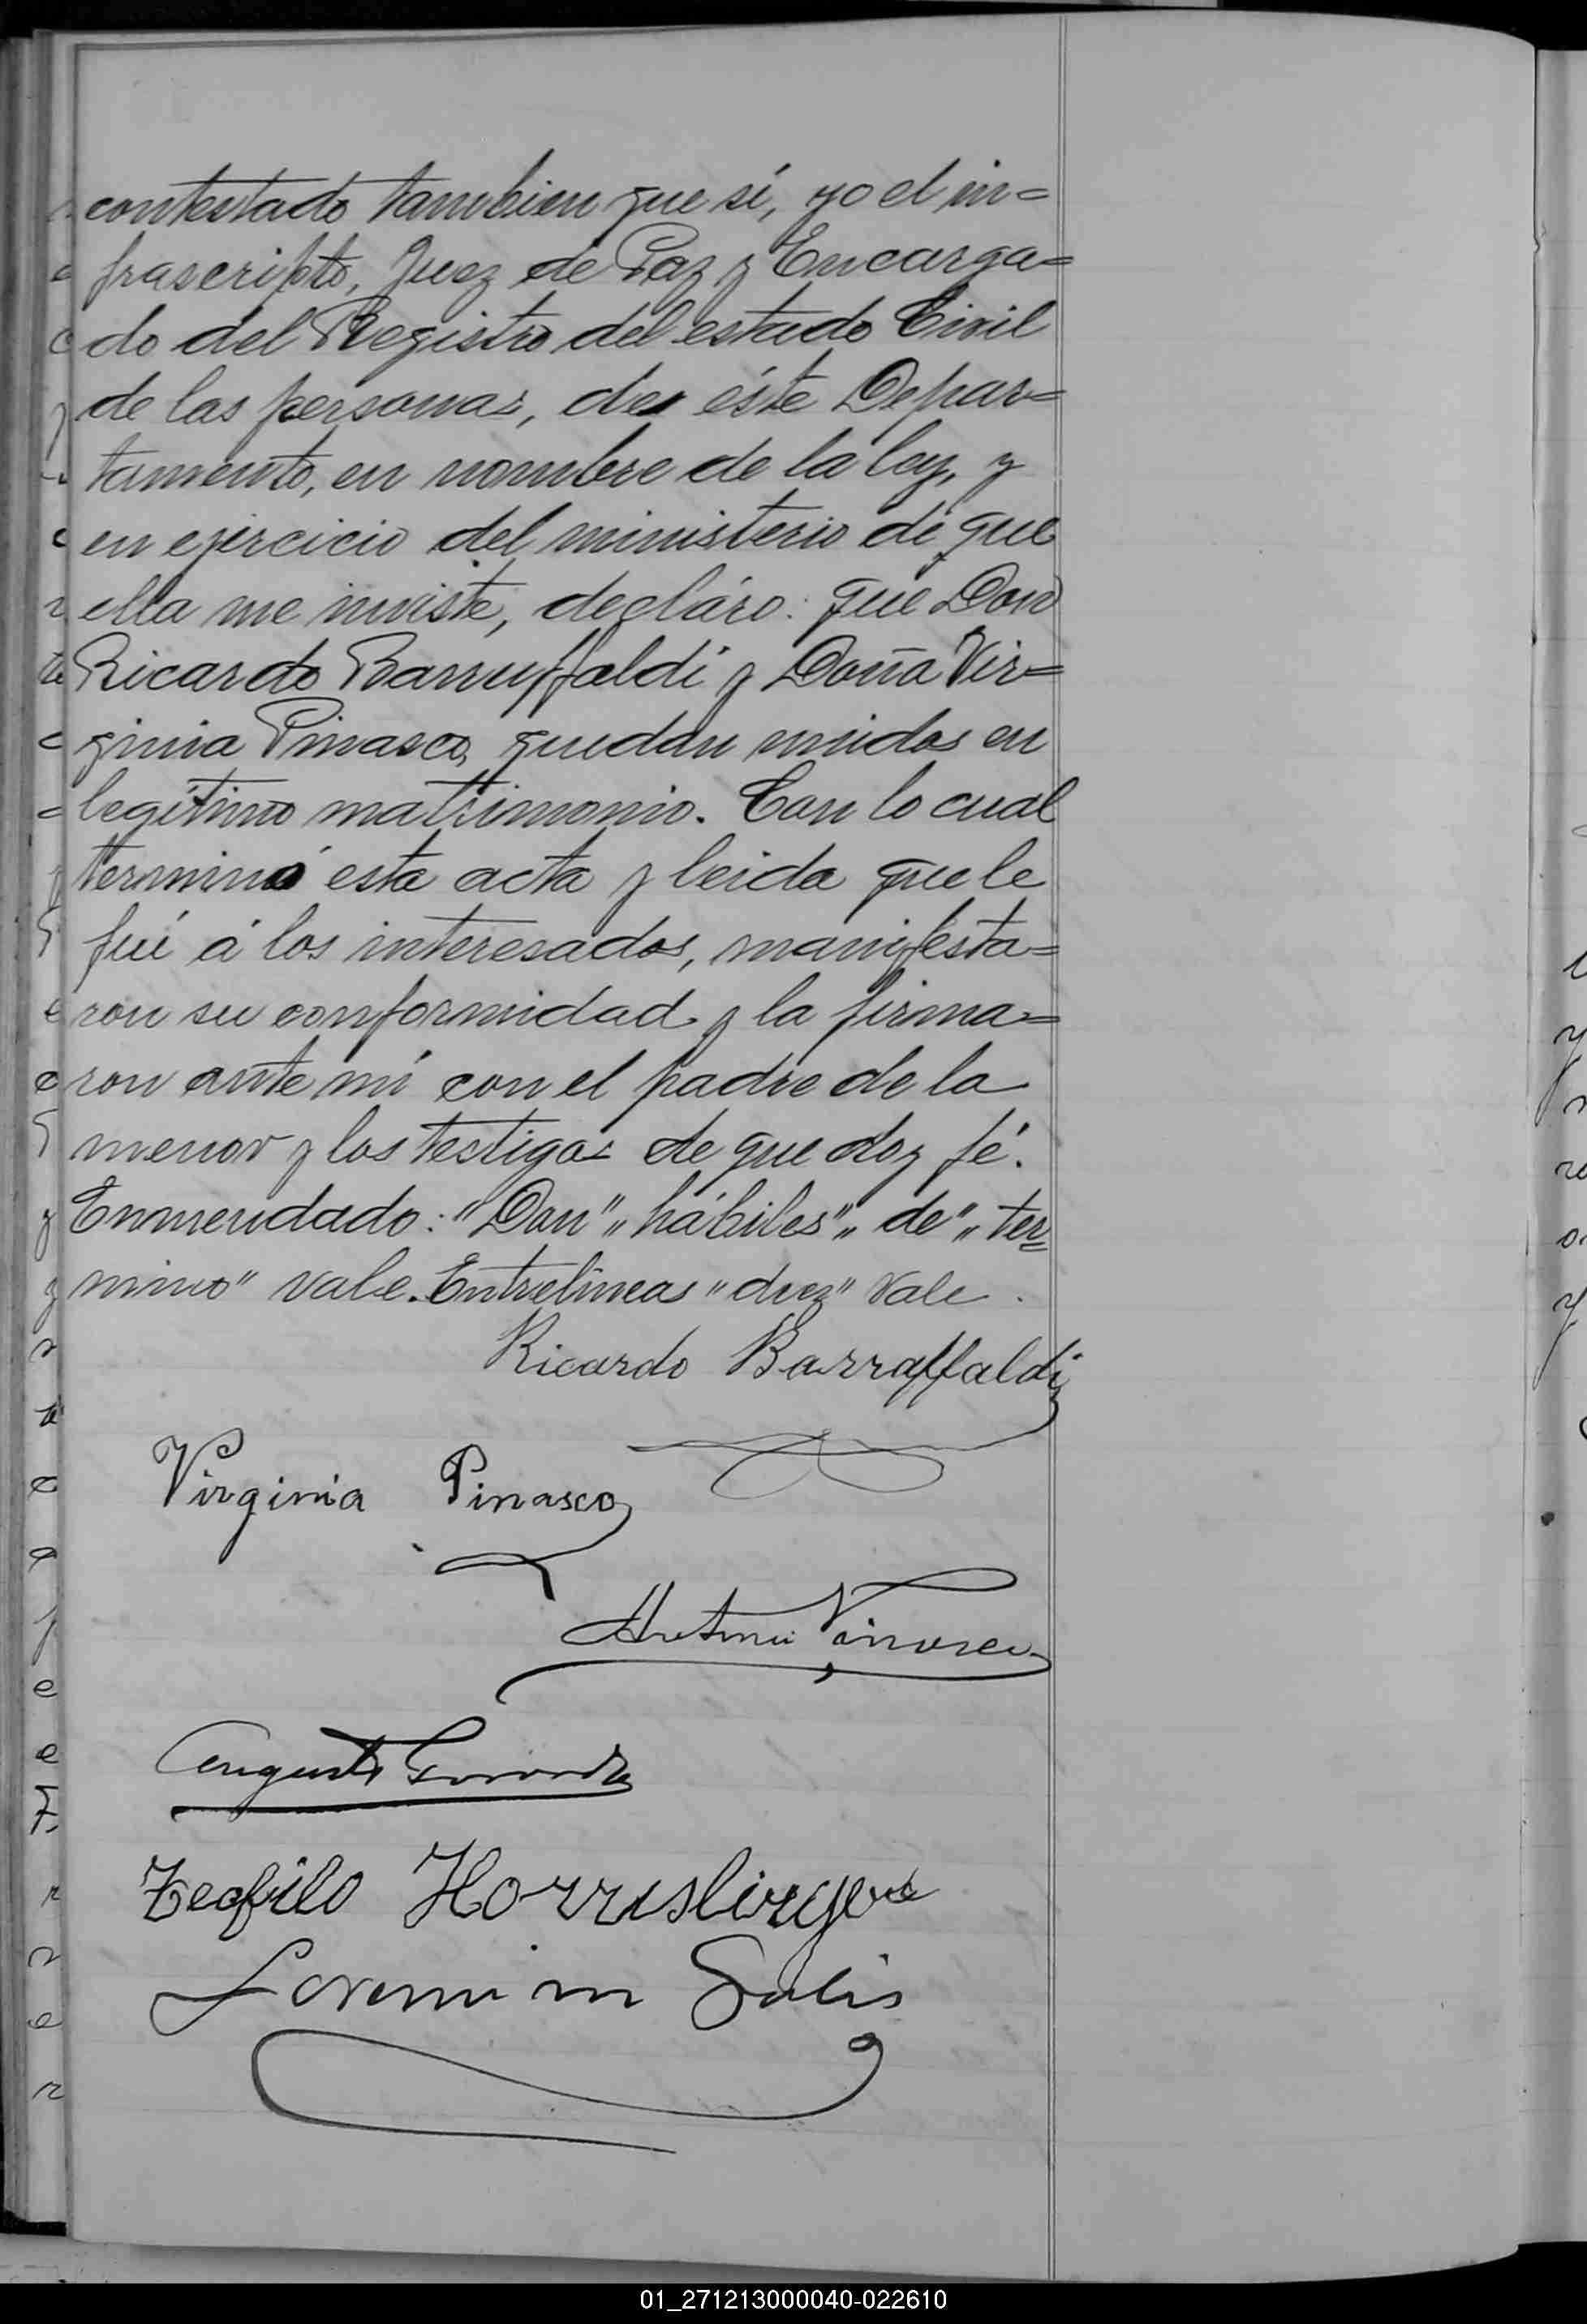 contestado tambien que sí, yo el in=
frascripto, Juez de Paz y Encarga=
do del Registro del estado Civil
de las personas, de éste Depar=
tamento, en nombre de la ley, y
en ejercicio del ministerio de que
ella me inviste, decláro: que Don
Ricardo Barruffaldi y Doña Vir=
ginia Pinasco, quedan unidos en
legítimo matrimonio. Con lo cual
terminó esta acta y leida que le
fué á los interesados, manifesta=
ron su conformidad y la firma=
ron ante mí con el padre de la
menor y los testigos de que doy fé.
Enmendado: "Don" „ hábiles" „ de" „ ter=
mino" vale. Entrelineas "diez" Vale.
Ricardo Barraffaldi
Virginia Pinasco
Solis
01_271213000040-022610